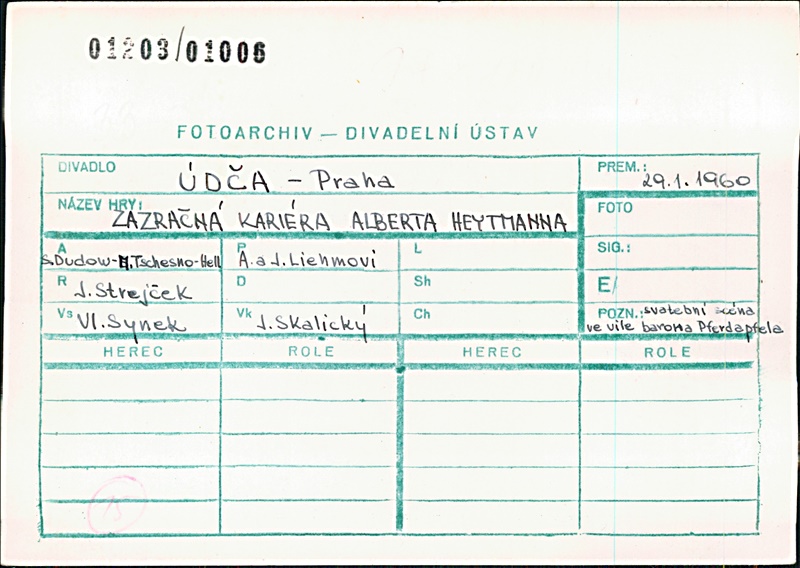 01203/01006
FOTOARCHIV — DIVADELNÍ ÚSTAV
DIVADLO ÚDČA - Praha
PREM.: 29.1.1960
NÁZEV HRY: ZÁZRAČNÁ KARIÉRA ALBERTA HEYTMANNA
FOTO
A S.Dudow-M.Tschesno-Hell
P A. a J. Liehmovi
L
SIG.:
R J. Strejček
D
Sh
E/
Vs Vl. Synek
Vk J. Skalický
Ch
POZN.: svatební scéna
ve vile barona Pferdapfela
HEREC ROLE HEREC ROLE
15